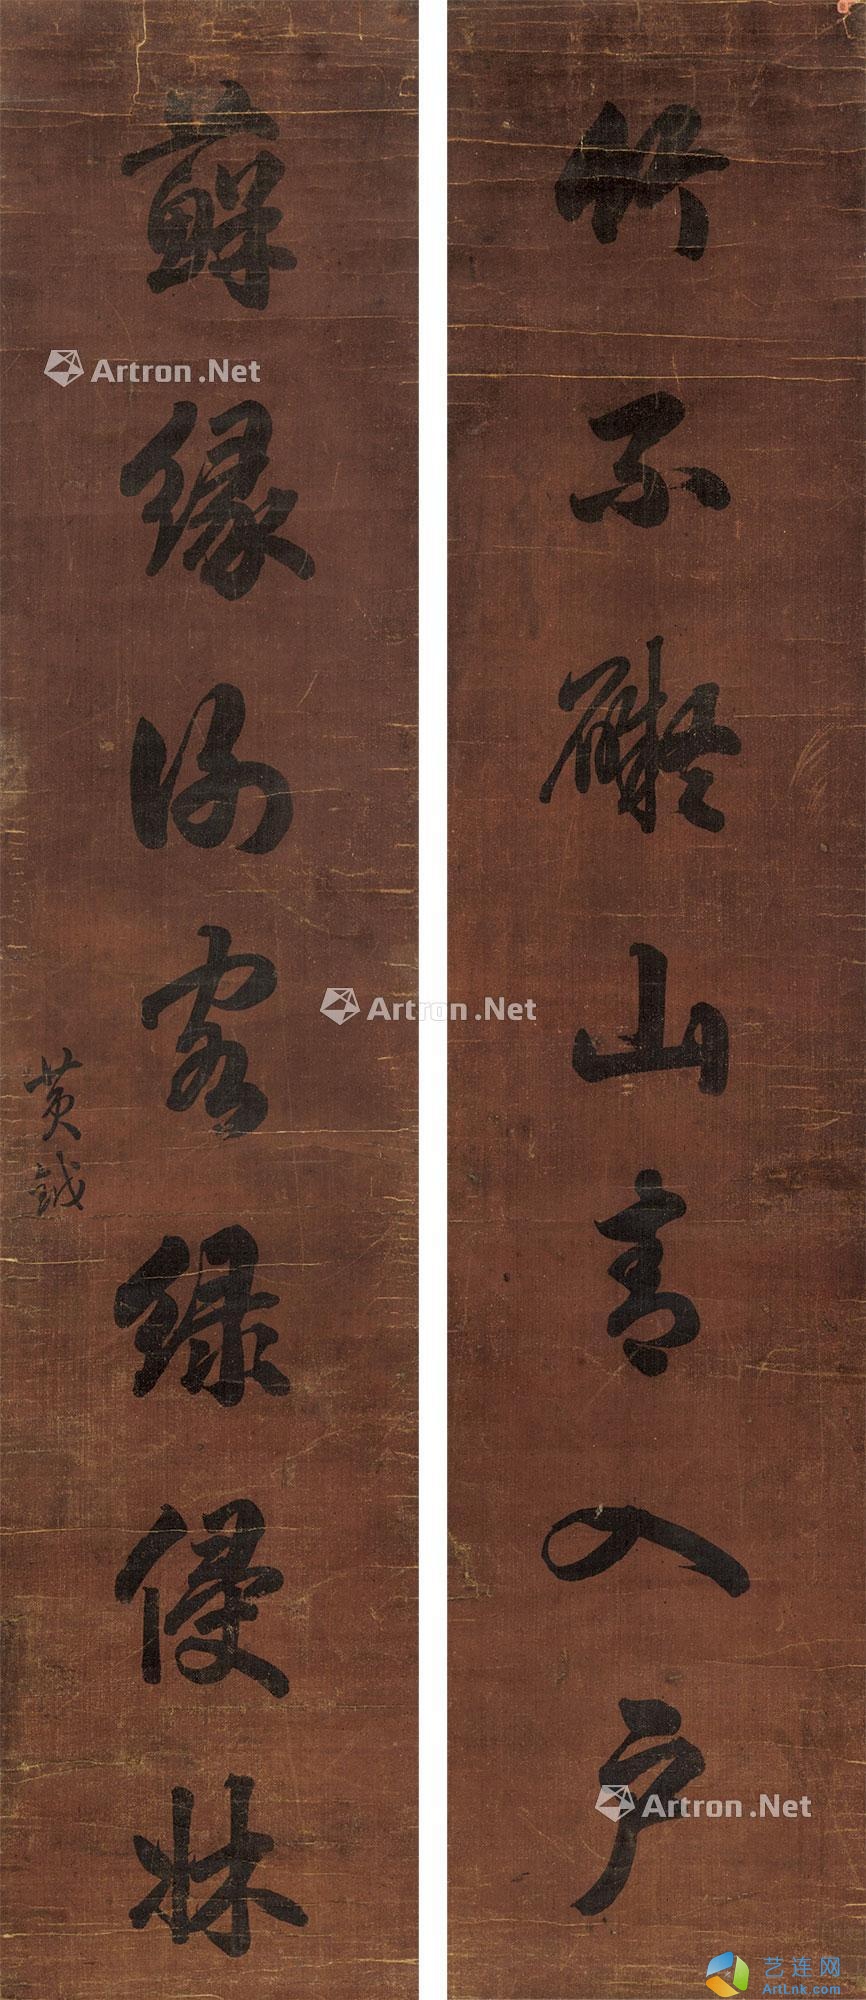 竹不礙山青入戶
蘚緣謝客綠侵牀
黄鉞
Artron.Net
Artron.Net
Artron.Net
艺连网
ArtLnk.com